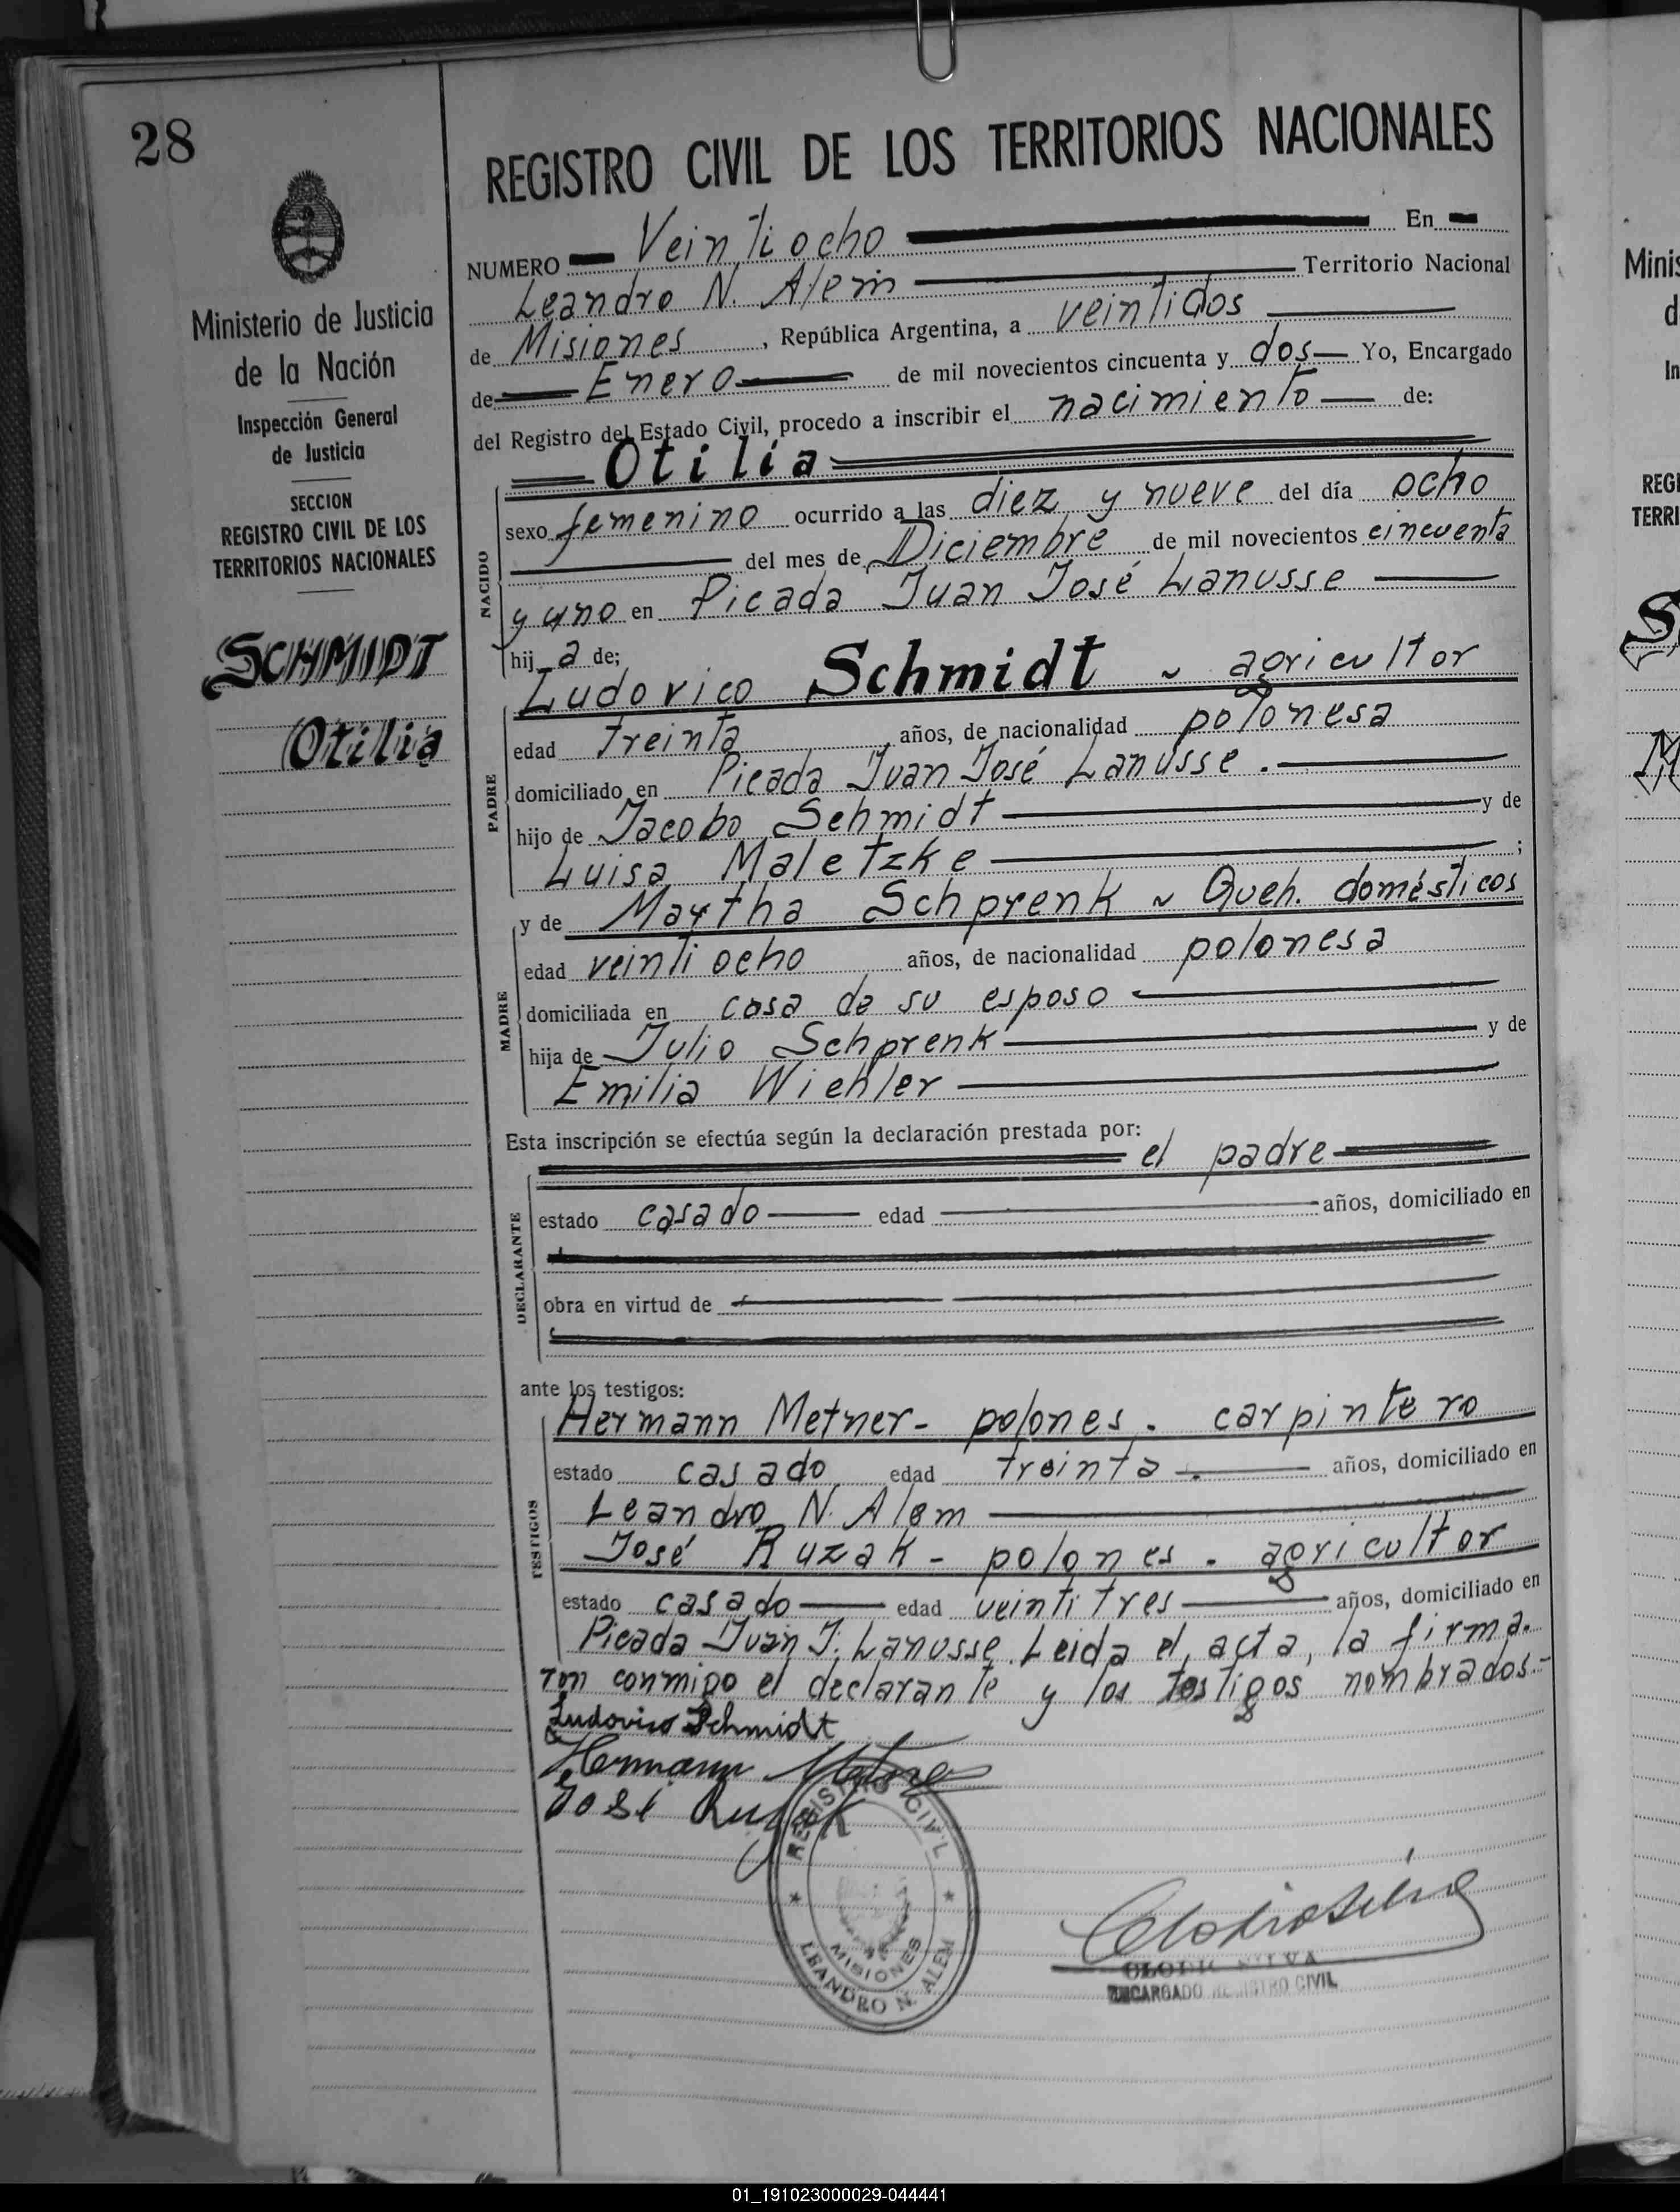 28
Ministerio de Justicia
de la Nación
Inspección General
de Justicia
SECCION
REGISTRO CIVIL DE LOS
TERRITORIOS NACIONALES
SCHMIDT
Otilia
REGISTRO CIVIL DE LOS TERRITORIOS NACIONALES
NUMERO Veintiocho En
Leandro N. Alem Territorio Nacional
de Misiones, República Argentina, a veintidos
de Enero de mil novecientos cincuenta y dos Yo, Encargado
del Registro del Estado Civil, procedo a inscribir el nacimiento de:
NACIDO
Otilia
sexo femenino ocurrido a las diez y nueve del día ocho
del mes de Diciembre de mil novecientos cincuenta
y uno en Picada Juan José Lanusse
hij a de;
PADRE
Ludovico Schmidt ~ agricultor
edad treinta, años, de nacionalidad polonesa
domiciliado en Picada Juan José Lanusse.
hijo de Jacobo Schmidt y de
Luisa Maletzke ;
MADRE
y de Martha Schprenk ~ Queh. domésticos
edad veintiocho años, de nacionalidad polonesa
domiciliada en casa de su esposo
hija de Julio Schprenk y de
Emilia Wiehler
Esta inscripción se efectúa según la declaración prestada por:
DECLARANTE
el padre
estado casado edad años, domiciliado en
obra en virtud de
ante los testigos:
TESTIGOS
Hermann Metner - polones. carpintero
estado casado edad treinta. años, domiciliado en
Leandro N. Alem
José Ruzak - polones. agricultor
estado casado edad veintitres años, domiciliado en
Picada Juan J. Lanusse. Leida el acta, la firma.
ron conmigo el declarante y los testigos nombrados.-
Ludovico Schmidt
Hermann Metner
José Ruzak
REGISTRO CIVIL
MISIONES
LEANDRO N. ALEM
ENCARGADO REGISTRO CIVIL
Minis
d
In
REGI
TERRI
S
M
01_191023000029-044441